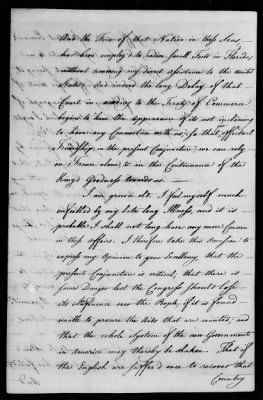 And the Fleet of that Nation in these Seas,
has been employ'd to reduce small Forts in Florida,
without rendering any direct Assistance to the united
States; And indeed the long Delay of that
Court in acceding to the Treaty of Commerce
begins to have the Appearance of its not inclining
to have any Connection with us; So that, for effectual
Friendship, in the present Conjuncture, we can rely
on France alone, & in the Continuance of the
King's Goodness towards us.
I am grown old. I feel myself much
enfeebled by my late long Illness, and it is
probable I shall not long have any more Concern
in these Affairs. I therefore take this Occasion to
express my Opinion to your Excellency, that the
present Conjuncture is critical, that there is
some Danger lest the Congress should lose
its Influence over the People, if it is found
unable to procure the Aids that are wanted; and
that the whole System of the new Government
in America may thereby be shaken. That if
the English are suffer'd once to recover that
Country